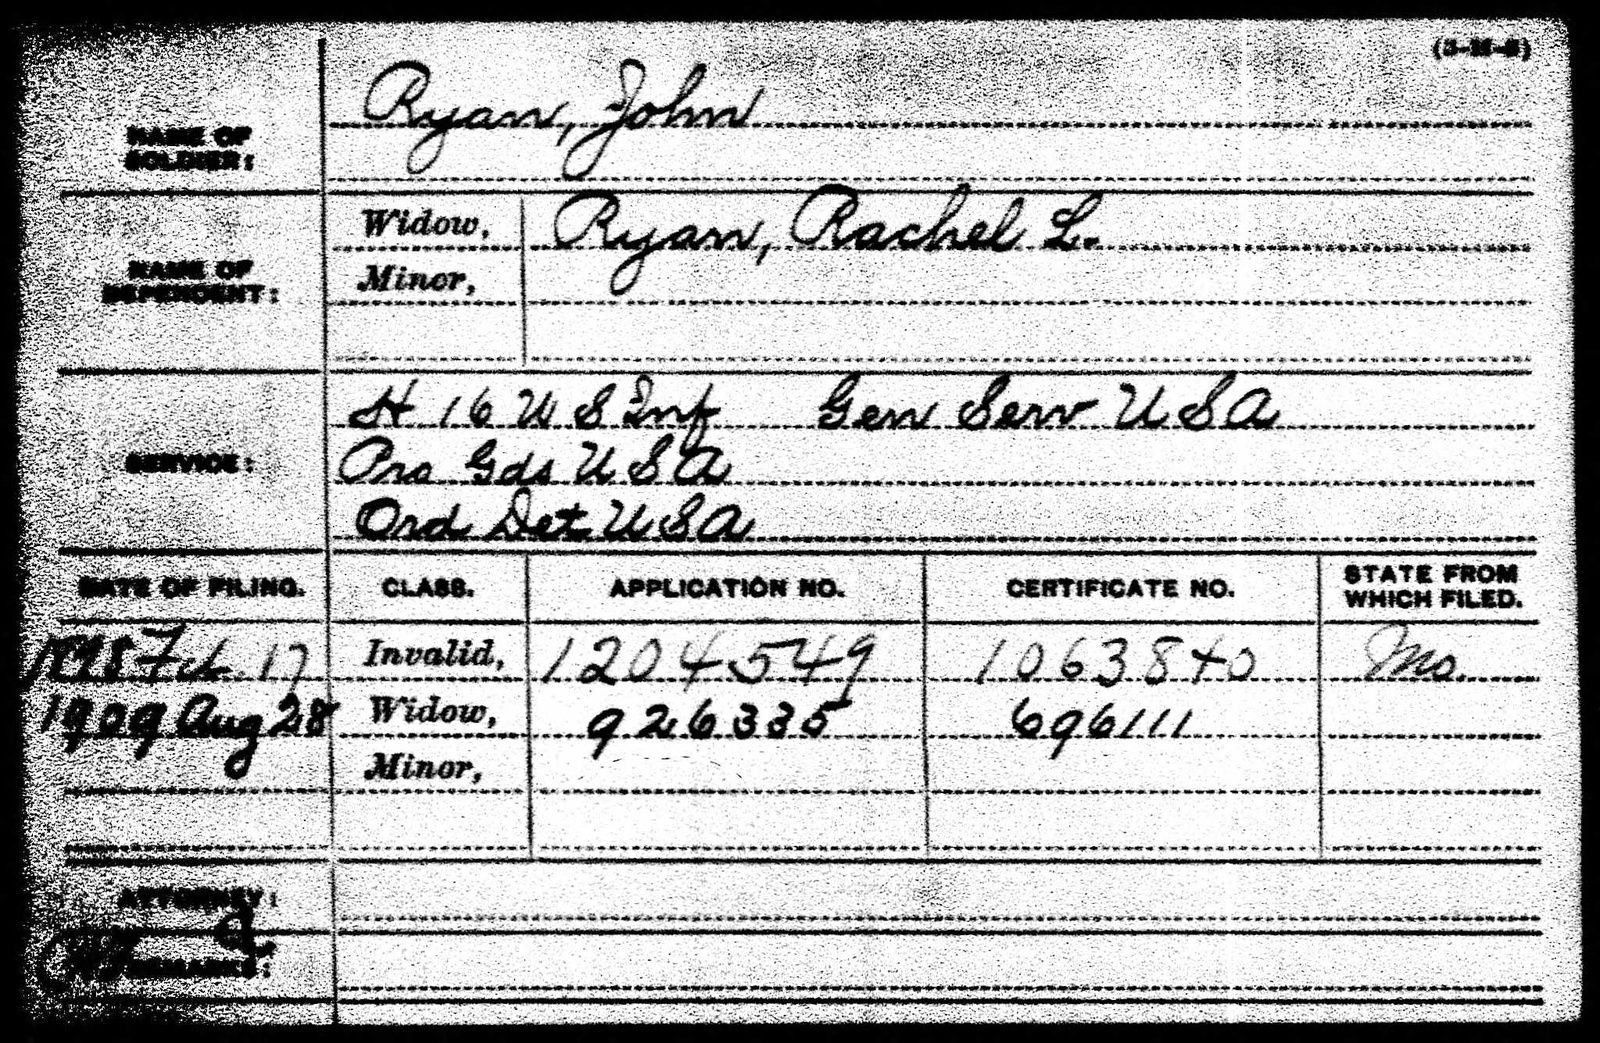 NAME OF SOLDIER:
Ryan, John
NAME OF DEPENDENT:
Widow, Ryan, Rachel L.
Minor,
SERVICE:
H 16 U S Inf Gen Serv U S A
Pro Gds U S A
Ord Det U S A
DATE OF FILING. CLASS. APPLICATION NO. CERTIFICATE NO. STATE FROM WHICH FILED.
1898 Feb. 17 Invalid, 1204549 1063840 Mo.
1909 Aug 28 Widow, 926335 696111
Minor,
ATTORNEY:
REMARKS: